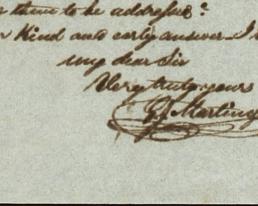 there to be addressed?
Kind and early answer. I
my dear Sir
Very truly yours
Martin